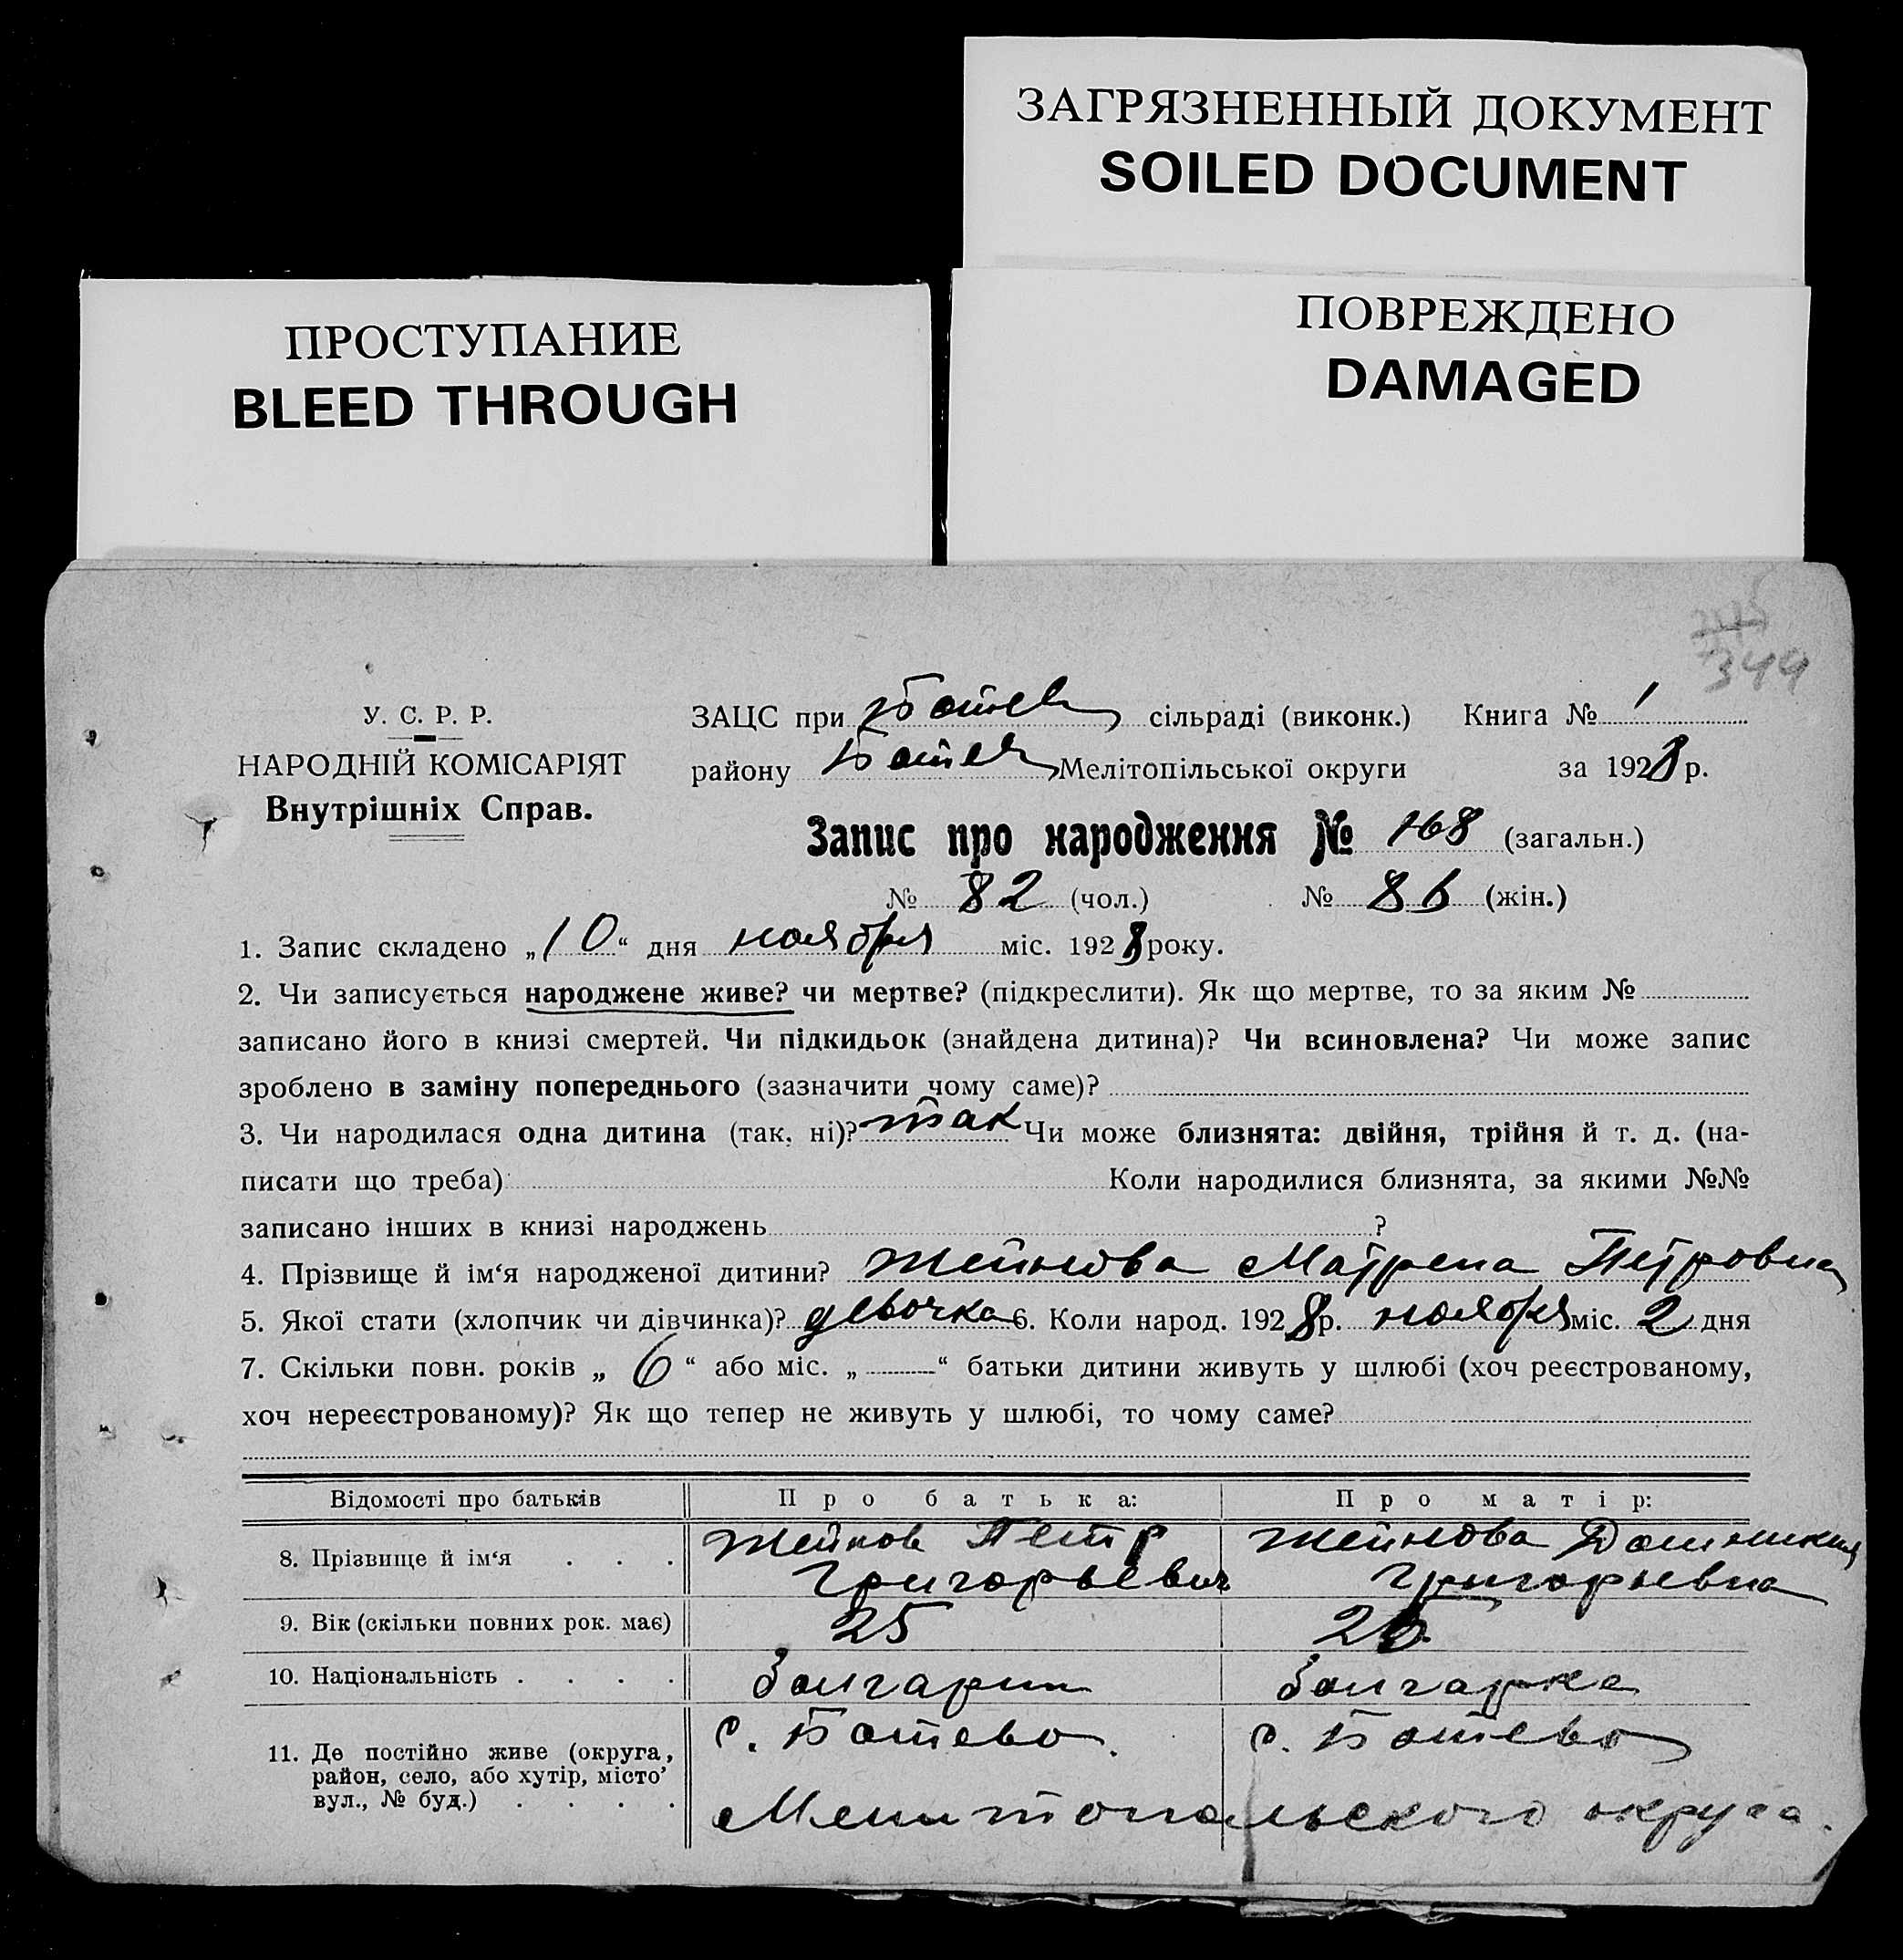 ЗАГРЯЗНЕННЫЙ ДОКУМЕНТ
SOILED DOCUMENT
ПРОСТУПАНИЕ
BLEED THROUGH
ПОВРЕЖДЕНО
DAMAGED
344
У. С. Р. Р.
НАРОДНІЙ КОМІСАРІЯТ
Внутрішніх Справ.
ЗАЦС при Ботев сільраді (виконк.) Книга № 1
району Ботев Мелітопільської округи за 1928 р.
Запис про народження № 168 (загальн.)
№ 82 (чол.) № 86 (жін.)
1. Запис складено „10“ дня ноября міс. 1928 року.
2. Чи записується народжене живе? чи мертве? (підкреслити). Як що мертве, то за яким №
записано його в книзі смертей. Чи підкидьок (знайдена дитина)? Чи всиновлена? Чи може запис
зроблено в заміну попереднього (зазначити чому саме)?
3. Чи народилася одна дитина (так, ні)? так Чи може близнята: двійня, трійня й т. д. (на-
писати що треба) Коли народилися близнята, за якими №№
записано інших в книзі народжень ?
4. Прізвище й ім‘я народженої дитини? Жейнова Матрена Петровна
5. Якої стати (хлопчик чи дівчинка)? девочка 6. Коли народ. 1928 р. ноября міс. 2 дня
7. Скільки повн. років „ 6 “ або міс. „ — “ батьки дитини живуть у шлюбі (хоч реєстрованому,
хоч нереєстрованому)? Як що тепер не живуть у шлюбі, то чому саме?
Відомості про батьків Про батька: Про матір:
8. Прізвище й ім‘я . . . Жейнов Петр Жейнова Домникия
Григорьевич Григорьевна
9. Вік (скільки повних рок. має) 25 26
10. Національність . . . . болгарин болгарка
11. Де постійно живе (округа, с. Ботево. с. Ботево
район, село, або хутір, місто’
вул., № буд.) . . . . Мелитопольского округа.